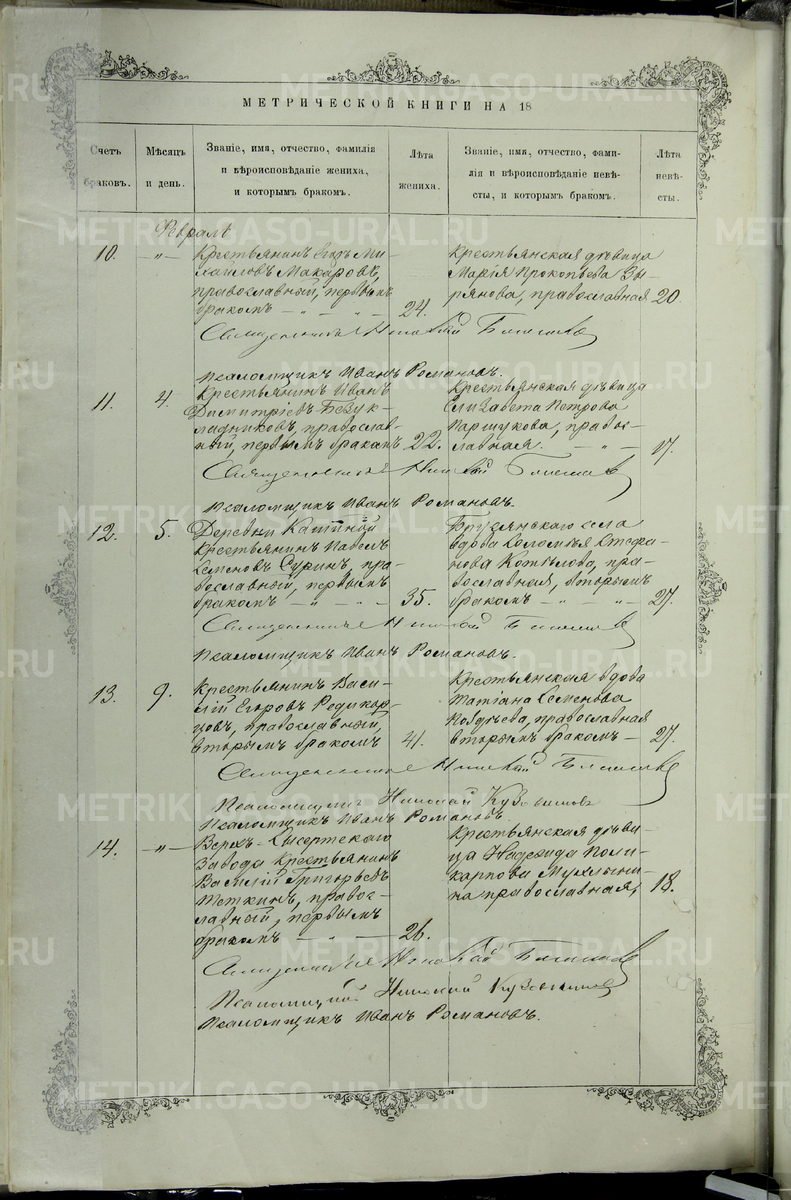 МЕТРИЧЕСКОЙ КНИГИ НА 18
Счетъ браковъ.
Мѣсяцъ и день.
Званіе, имя, отчество, фамилія
и вѣроисповѣданіе жениха,
и которымъ бракомъ.
Лѣта жениха.
Званіе, имя, отчество, фами-
лія и вѣроисповѣданіе невѣ-
сты, и которымъ бракомъ.
Лѣта невѣ-
сты.
Февраль
10. -"-
Крестьянинъ Егоръ Ми-
хаиловъ Макаровъ,
православный, первымъ
бракомъ - " - " - 24.
Крестьянская дѣвица
Марія Прокопьева Зы-
рянова, православная 20
Священникъ Николай
Псаломщикъ Иванъ Романовъ.
11. 4.
Крестьянинъ Иванъ
Димитріевъ Безук-
ладниковъ, православ-
ный, первымъ бракомъ 22.
Крестьянская дѣвица
Елизавета Петрова
Паршукова, правос-
лавная. - " - 17.
Священникъ Николай
Псаломщикъ Иванъ Романовъ.
12. 5.
Деревни
Крестьянинъ Павелъ
Семеновъ Суринъ, пра-
вославный, первымъ
бракомъ - " - " - 35.
Брусянского села
вдова Соломія Стефа-
нова Копылова, пра-
вославная, вторымъ
бракомъ - " - " - 27.
Священникъ Николай
Псаломщикъ Иванъ Романовъ.
13. 9.
Крестьянинъ Васи-
лій Егоровъ Редикор-
цовъ, православный,
вторымъ бракомъ 41.
Крестьянская вдова
Татіана Семенова
православная
вторымъ бракомъ - 27.
Священникъ Николай
Псаломщикъ Николай
Псаломщикъ Иванъ Романовъ.
14. -"-
Верхъ-Сысертского
Завода Крестьянинъ
Василій Григорьевъ
Теткинъ, правос-
лавный, первымъ
бракомъ - " - 26.
Крестьянская дѣви-
ца Надежда Поли-
карпова Мухлыни-
на православная, 18.
Священникъ Николай
Псаломщикъ Николай
Псаломщикъ Иванъ Романовъ.
METRIKI.GASO-URAL.RU